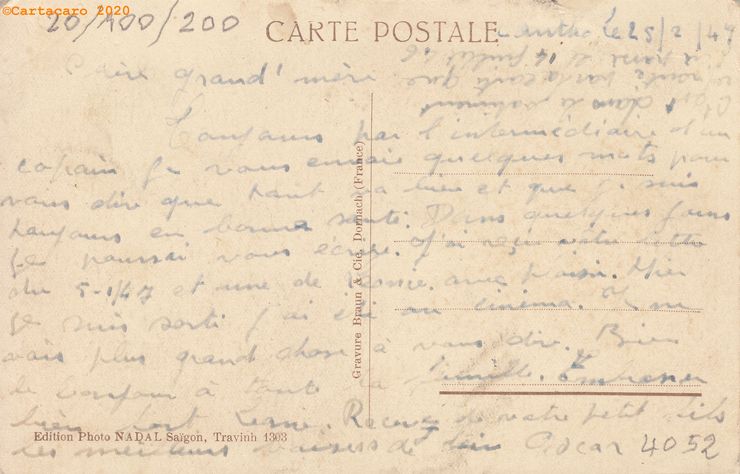 ©Cartacaro 2020
20/100/200
CARTE POSTALE
le 25/2/47
14 juillet 46
la carte que
c'est dans le
Chère grand'mère
Toujours par l'intermédiaire d'un
copain je vous envoie quelques mots pour
vous dire que tout va bien et que je suis
toujours en bonne santé. Dans quelques jours
je pourrai vous écrire. J'ai reçu votre lettre
du 5-1/47 et une de avec plaisir. Hier
je suis sorti j'ai été au cinéma.
plus grand chose à vous dire. Bien
le bonjour à toute la famille. Embrasser
bien fort Recevez de votre petit fils
les meilleurs baisers de loin Oscar
Gravure Braun & Cie, Dornach (France)
Edition Photo NADAL Saïgon, Travinh 1303
4052